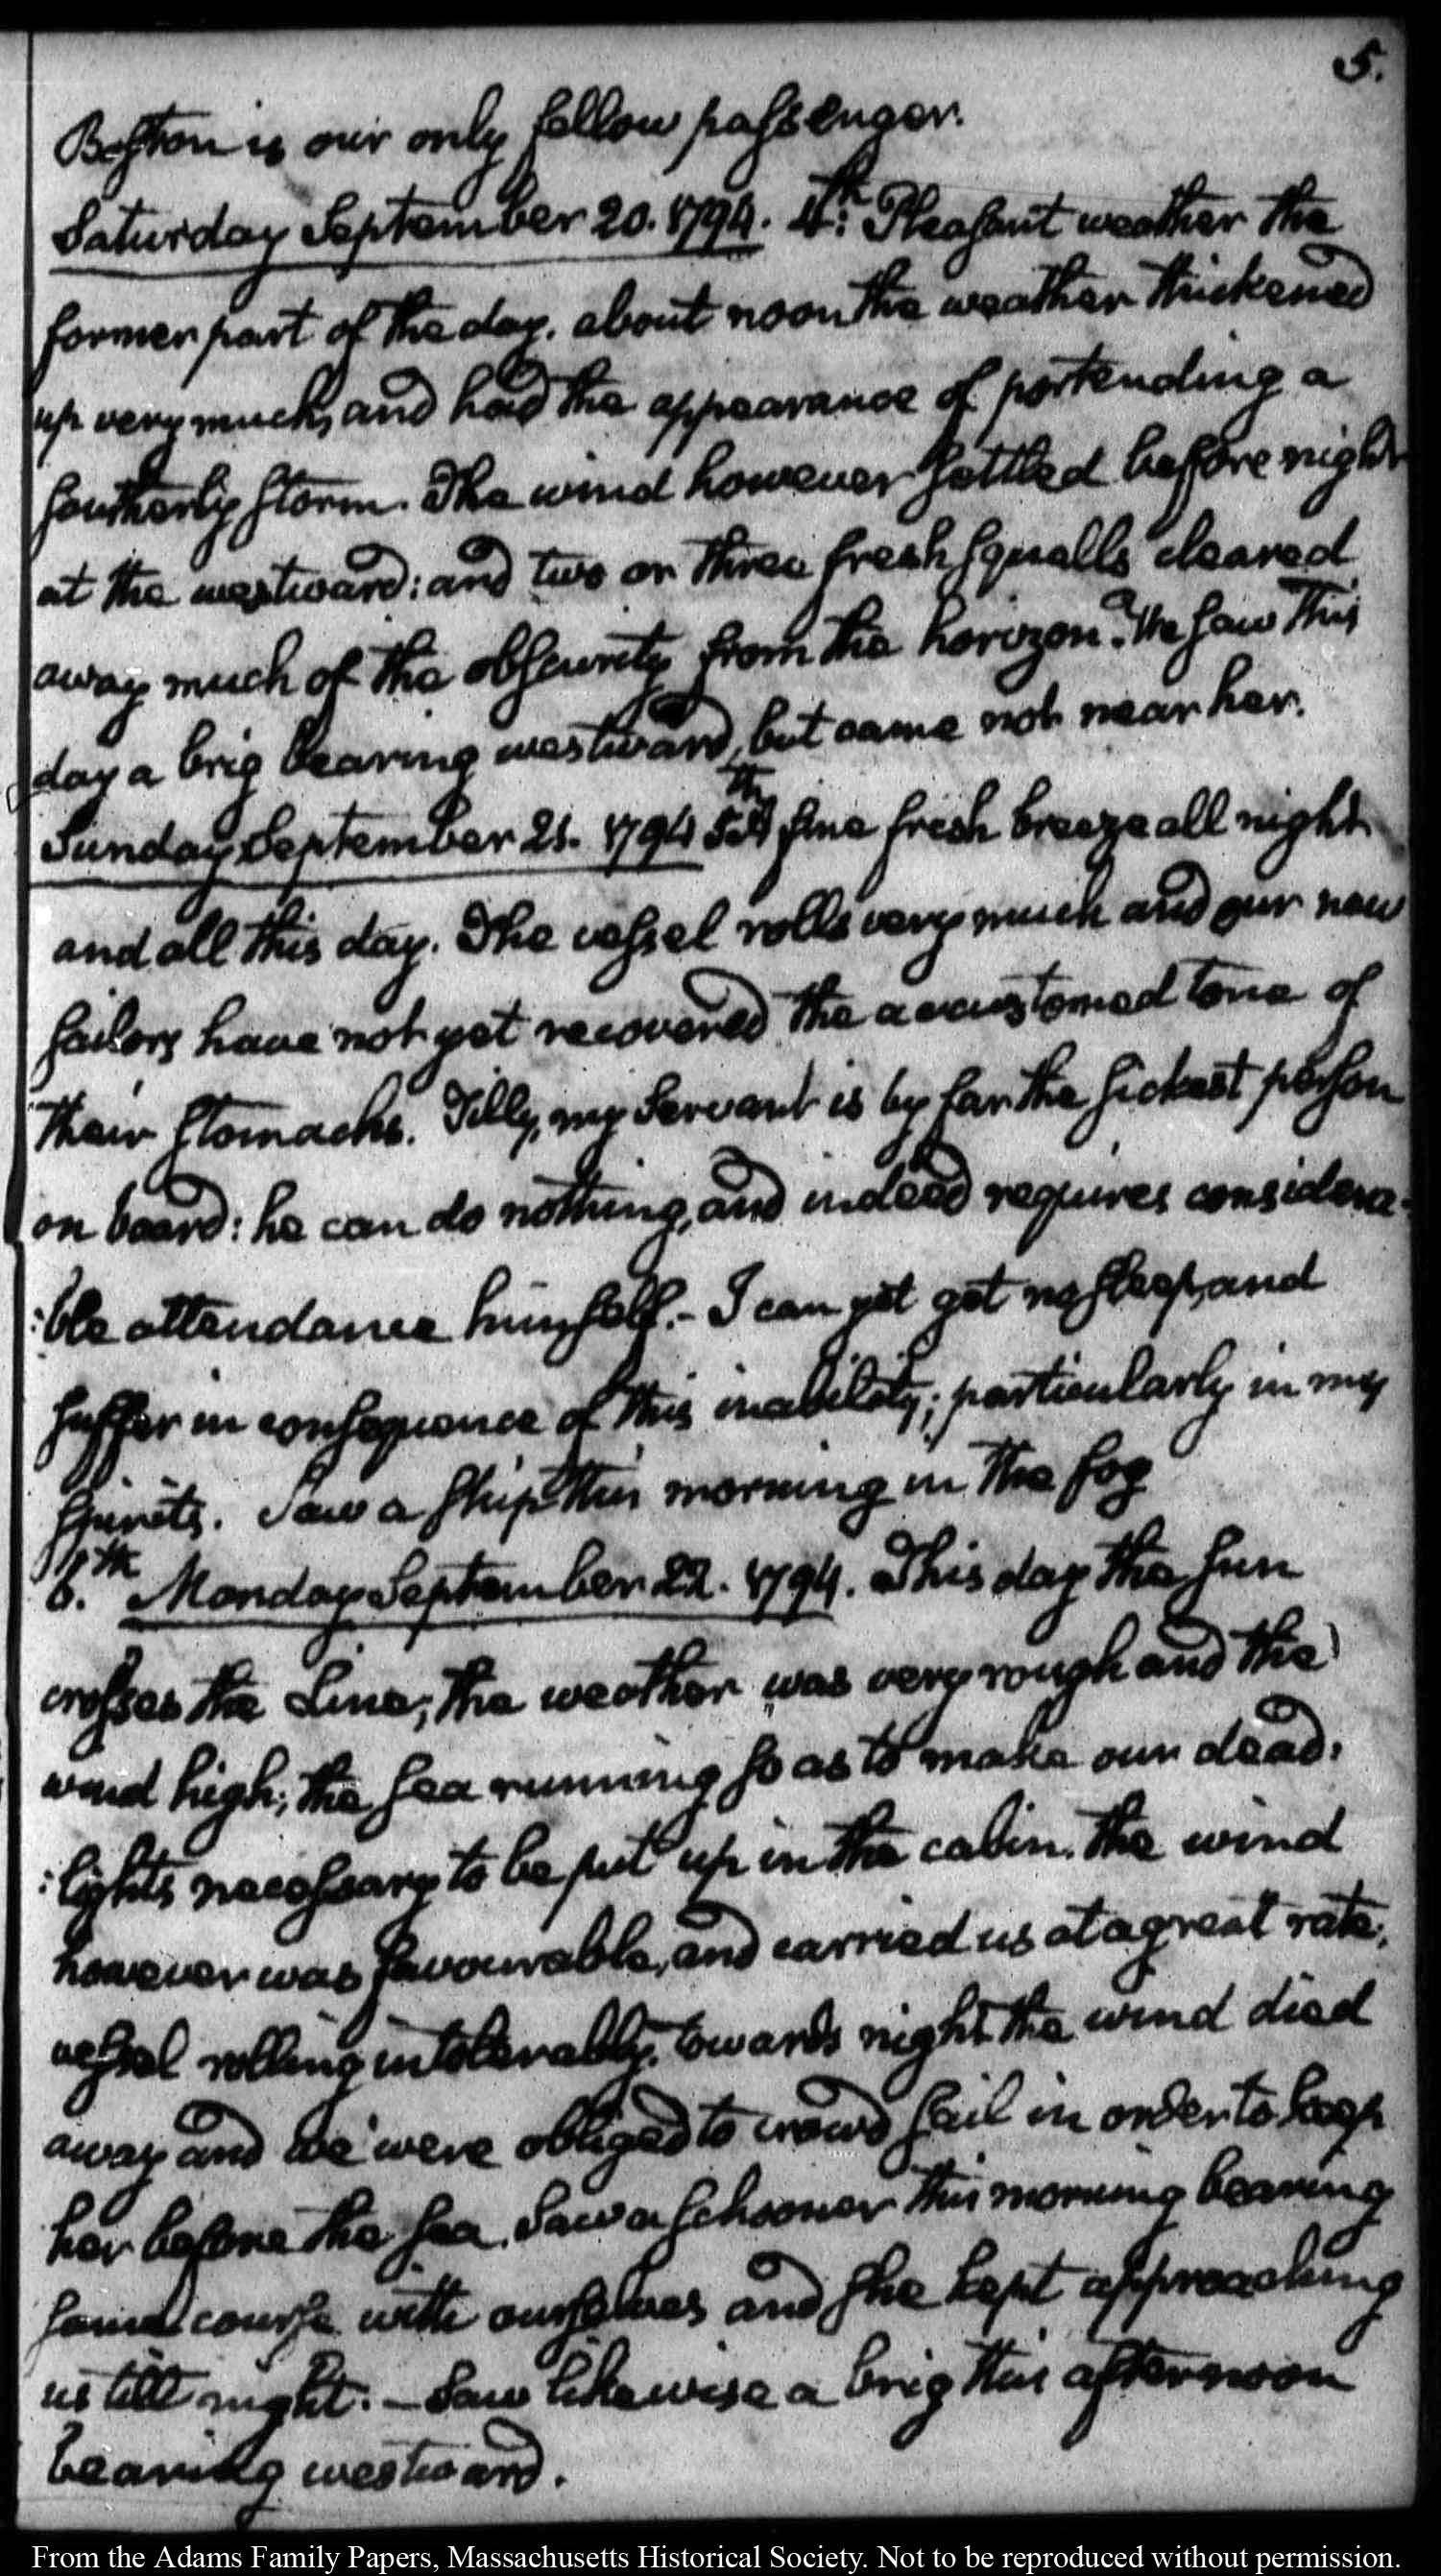 5.
Boston is our only fellow passenger.
Saturday September 20. 1794. 4th: Pleasant weather the
former part of the day. about noon the weather thickened
up very much, and had the appearance of portending a
southerly storm. The wind however settled before night
at the westward: and two or three fresh squalls cleared
away much of the obscurity from the horizon. We saw this
day a brig bearing westward, but came not near her.
Sunday September 21. 1794 5th A fine fresh breeze all night
and all this day. The vessel rolls very much and our new
sailors have not yet recovered the accustomed tone of
their stomachs. Tilly, my Servant is by far the sickest person
on board: he can do nothing, and indeed requires considera-
:ble attendance himself.- I can yet get no sleep, and
suffer in consequence of this inability; particularly in my
spirits. Saw a ship this morning in the fog
6.th Monday September 22. 1794. This day the sun
crosses the Line; the weather was very rough and the
wind high; the sea running so as to make our dead:
:lights necessary to be put up in the cabin. The wind
however was favourable, and carried us at a great rate;
vessel rolling intolerably. towards night the wind died
away and we were obliged to crowd sail in order to keep
her before the sea. Saw a schooner this morning bearing
same course with ourselves and she kept approaching
us till night. - Saw likewise a brig this afternoon
bearing westward.
From the Adams Family Papers, Massachusetts Historical Society. Not to be reproduced without permission.